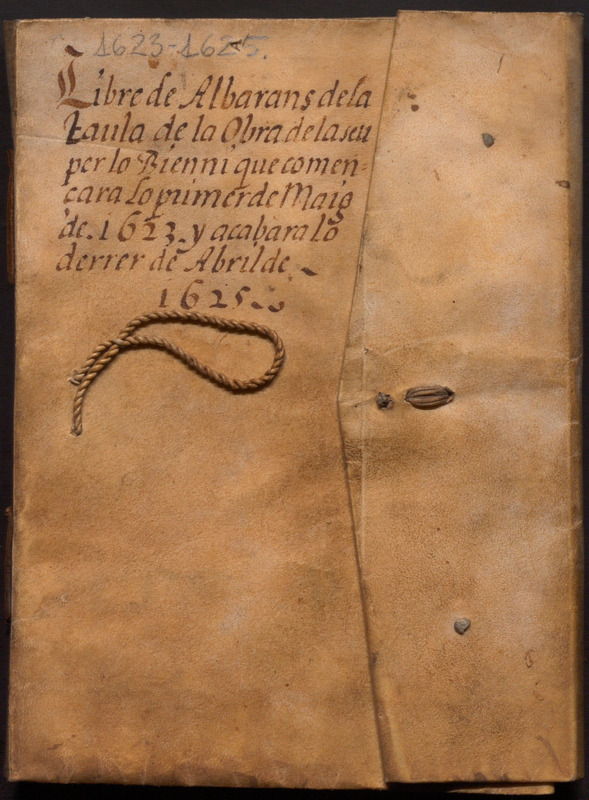 1623-1625.
Libre de Albarans de la
taula de la Obra de la seu
per lo Bienni que comen-
çara lo primer de Maig
de .1623. y acabara lo
derrer de Abril de
1625.